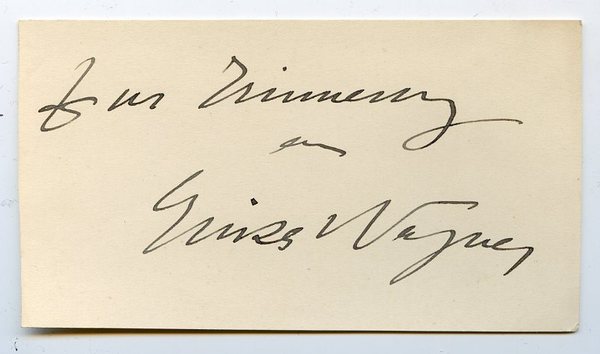 Zur Erinnerung
an
Erika Wagner